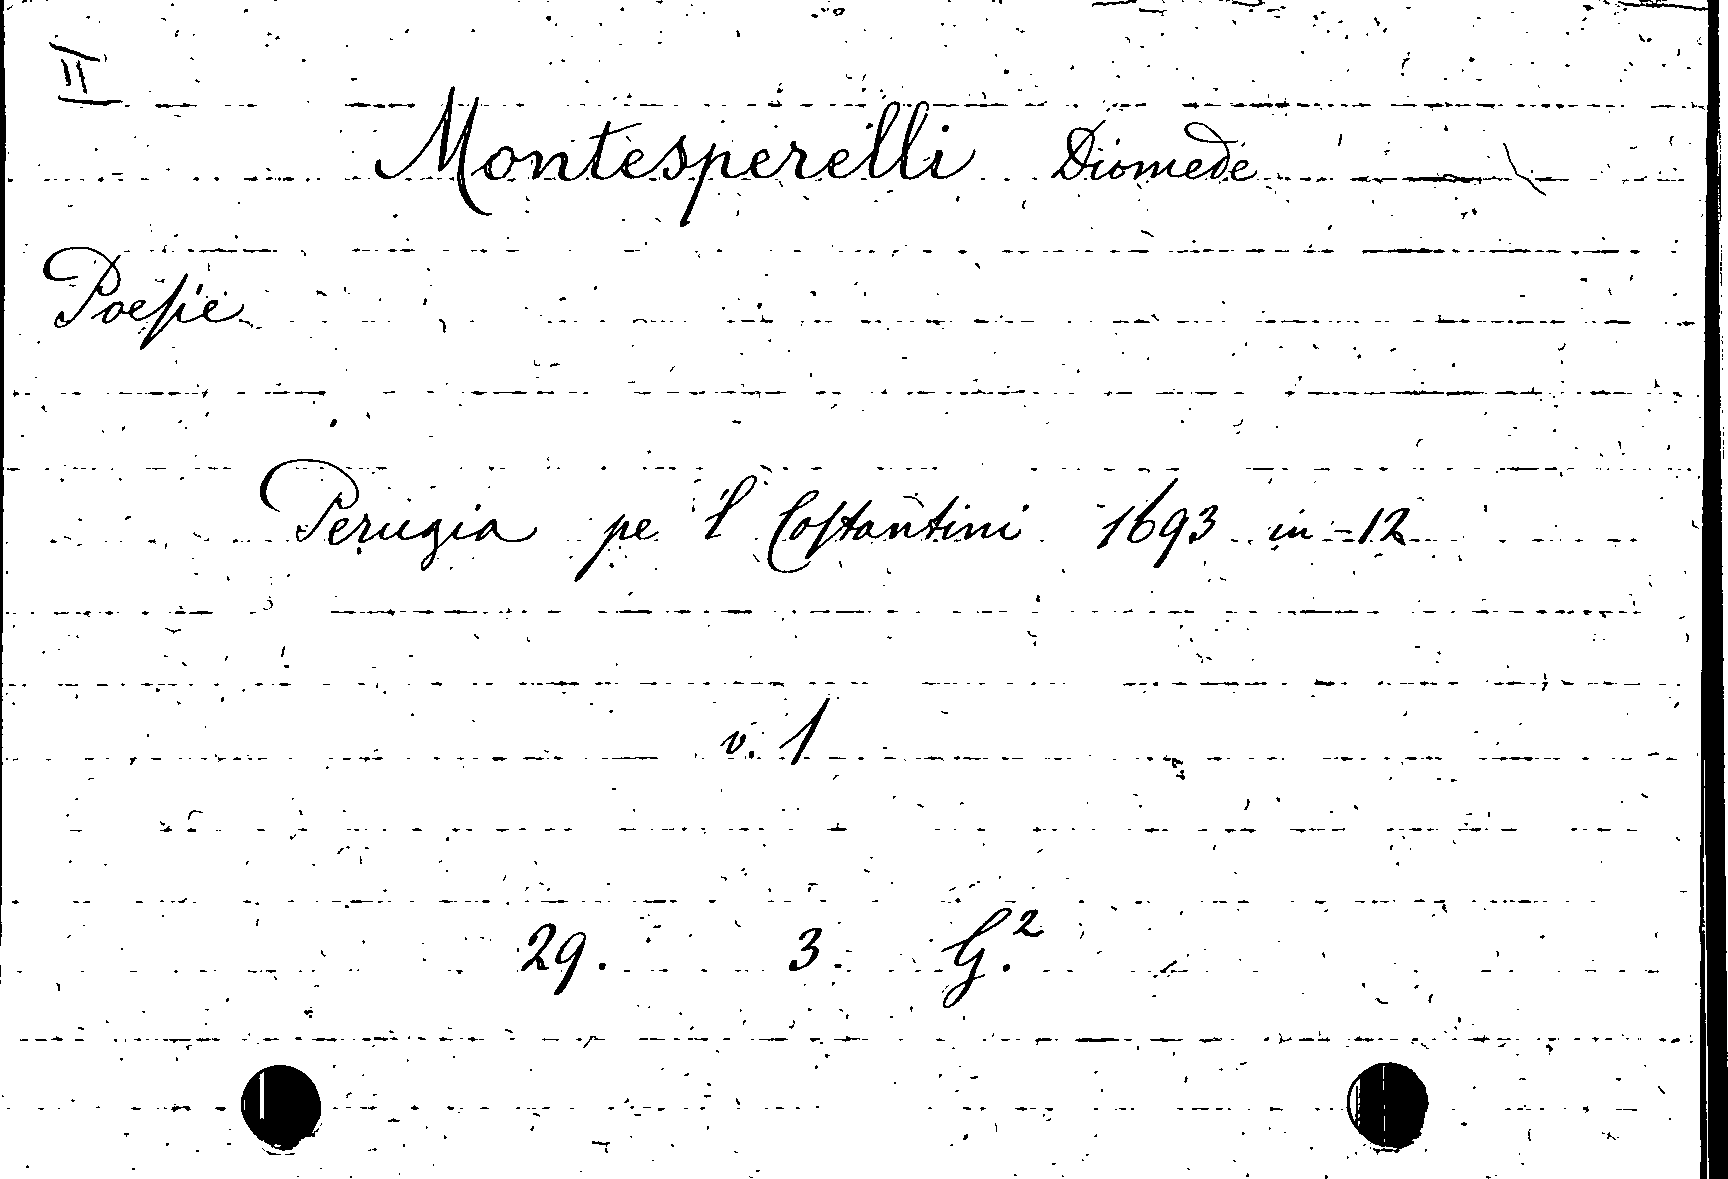 II
Montesperelli Diomede
Poesie
Perugia pe 'l Costantini 1693 in-12
v. 1
29. 3. G.²